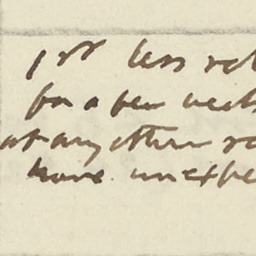 1st less rel
for a few week
at any other ra
have unexpe